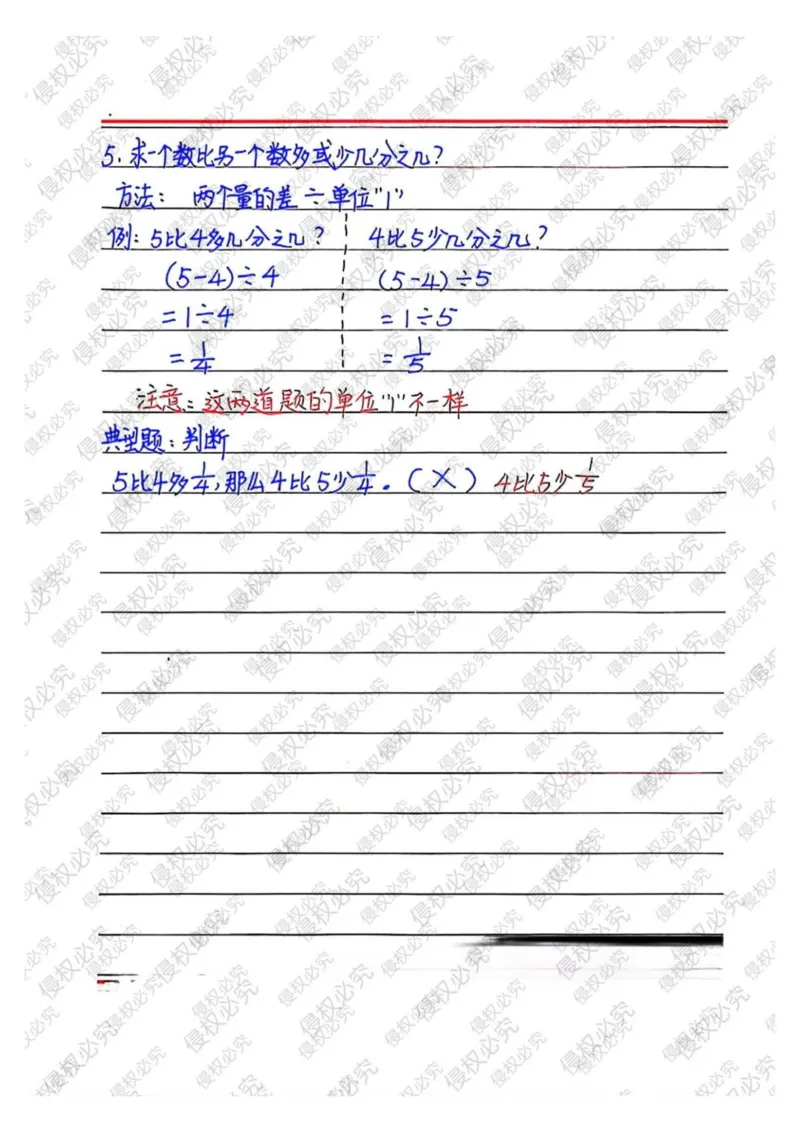 5.求一个数比另一个数多或少几分之几?
方法: 两个量的差÷单位"1"
例:5比4多几分之几? 4比5少几分之几?
(5-4)÷4 (5-4)÷5
=1÷4 =1÷5
=1/4 =1/5
注意:这两道题的单位"1"不一样
典型题:判断
5比4多1/4,那么4比5少1/4.(×) 4比5少1/5
侵权必究